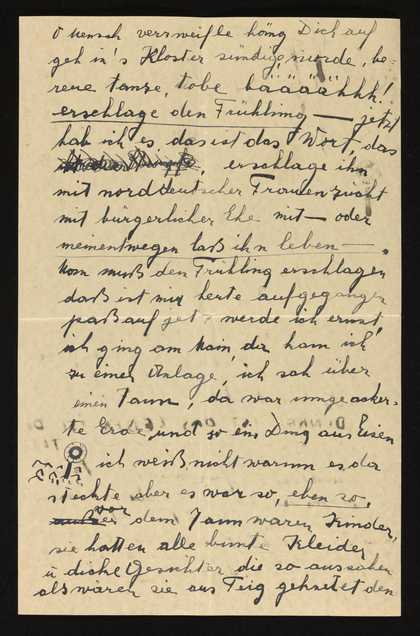 O Mensch verzweifle häng Dich auf
geh in's Kloster sündige, morde, be-
reue tanze, tobe bääääähhh!
erschlage den Frühling — jetzt
hab ich es das ist das Wort, das
erschlage ihn
mit norddeutscher Frauenzucht
mit bürgerlicher Ehe mit — oder
meinentwegen laß ihn leben —.
Man muß den Frühling erschlagen
daß ist mir heute aufgegangen
paß auf jetz werde ich ernst,
ich ging am Main, da kam ich
zu einer Anlage, ich sah über
einen Zaun, da war umgeacker-
te Erde, und so ein Ding aus Eisen
ich weiß nicht warum es da
steckte aber es war so, eben so,
vor dem Zaun waren Kinder,
sie hatten alle bunte Kleider
u dicke Gesichter die so aussahen
als wären sie aus Teig geknetet den